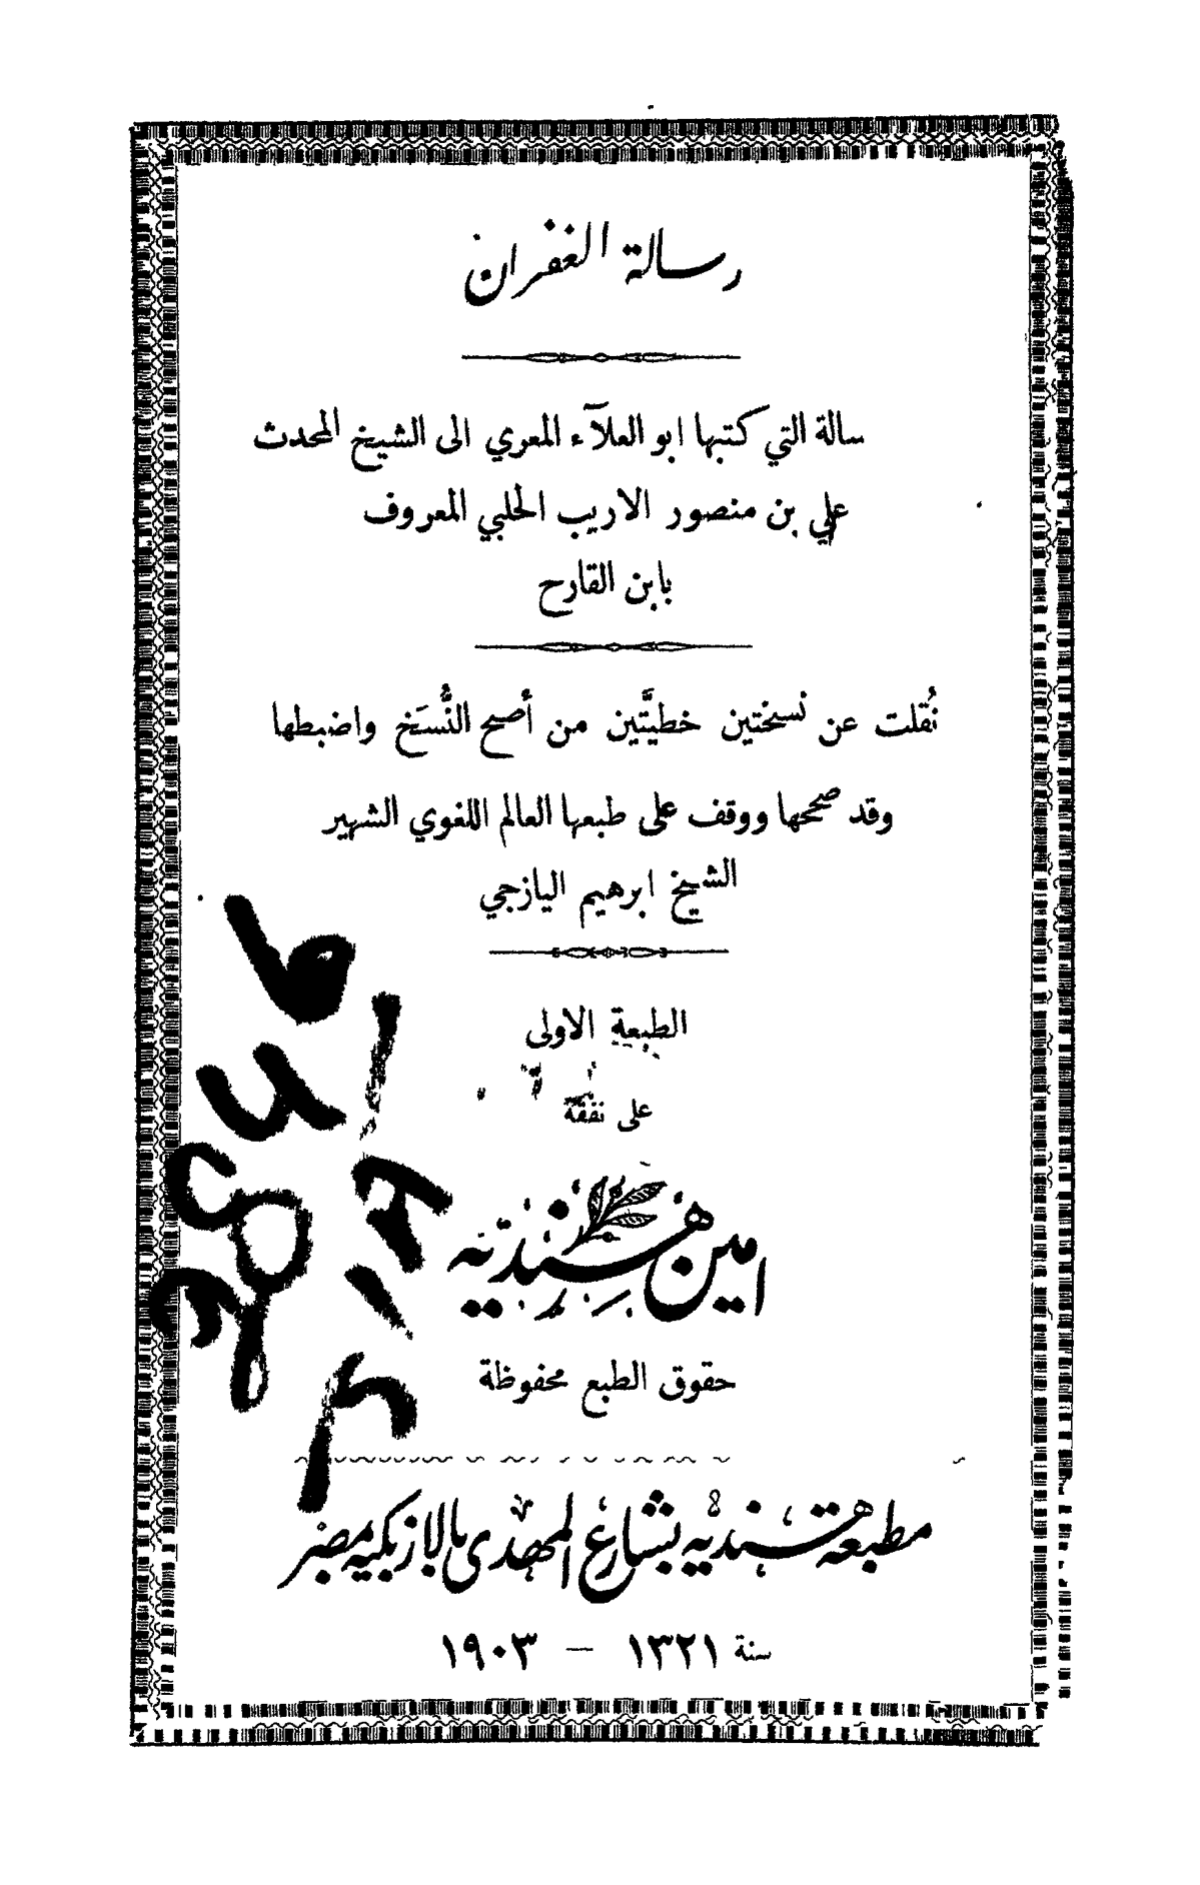 رسالة الغفران
سالة التي كتبها ابو العلآء المعري الى الشيخ المحدث
علي بن منصور الاريب الحلبي المعروف
بابن القارح
نُقلت عن نسختين خطيَّتين من أصح النُّسَخ واضبطها
وقد صححها ووقف على طبعها العالم اللغوي الشهير
الشيخ ابرهيم اليازجي
الطبعة الاولى
على نفقة
امين هندية
حقوق الطبع محفوظة
مطبعة هندية بشارع المهدى بالازبكية بمصر
سنة ١٣٢١ — ١٩٠٣